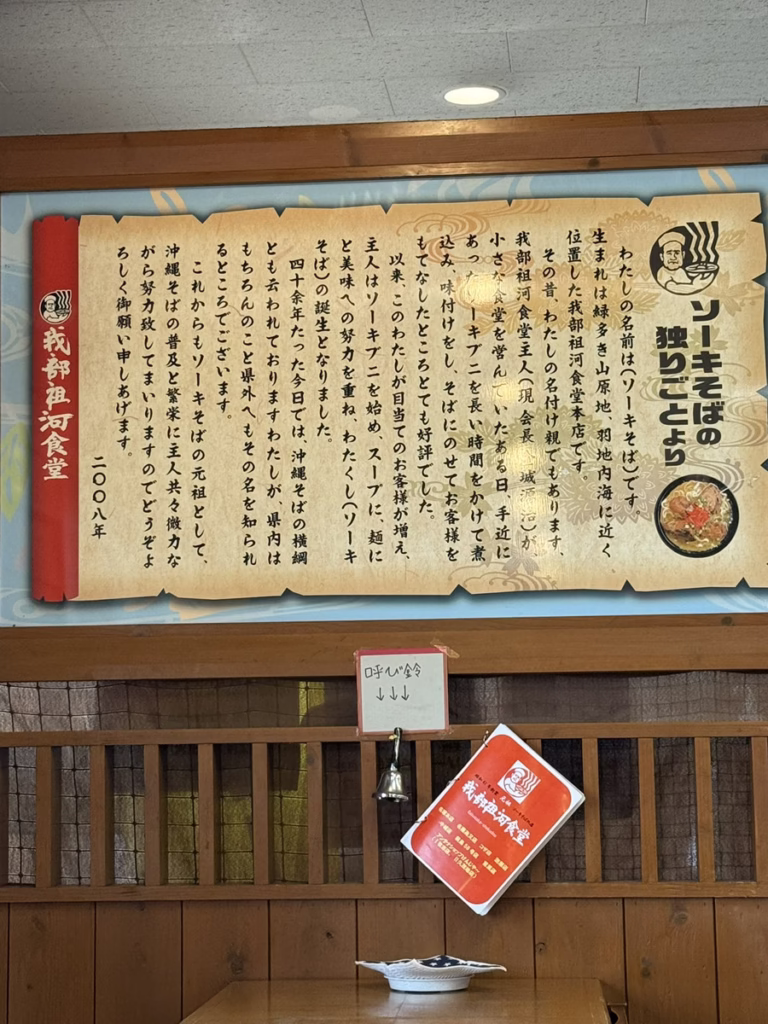 ソーキそばの
独りごとより
わたしの名前は(ソーキそば)です。
生まれは緑多き山原地、羽地内海に近く、
位置した我部祖河食堂本店です。
その昔、わたしの名付け親でもあります、
我部祖河食堂主人(現 会長 金城源治)が
小さな食堂を営んでいたある日、手近に
あったソーキブニを長い時間をかけて煮
込み、味付けをし、そばにのせてお客様を
もてなしたところとても好評でした。
以来、このわたしが目当てのお客様が増え、
主人はソーキブニを始め、スープに、麺に
と美味への努力を重ね、わたくし(ソーキ
そば)の誕生となりました。
四十余年たった今日では、沖縄そばの横綱
とも云われておりますわたしが、県内は
もちろんのこと県外へもその名を知られ
るところでございます。
これからもソーキそばの元祖として、
沖縄そばの普及と繁栄に主人共々微力な
がら努力致してまいりますのでどうぞよ
ろしく御願い申しあげます。
二〇〇八年
我部祖河食堂
呼び鈴
↓↓↓
我部祖河食堂